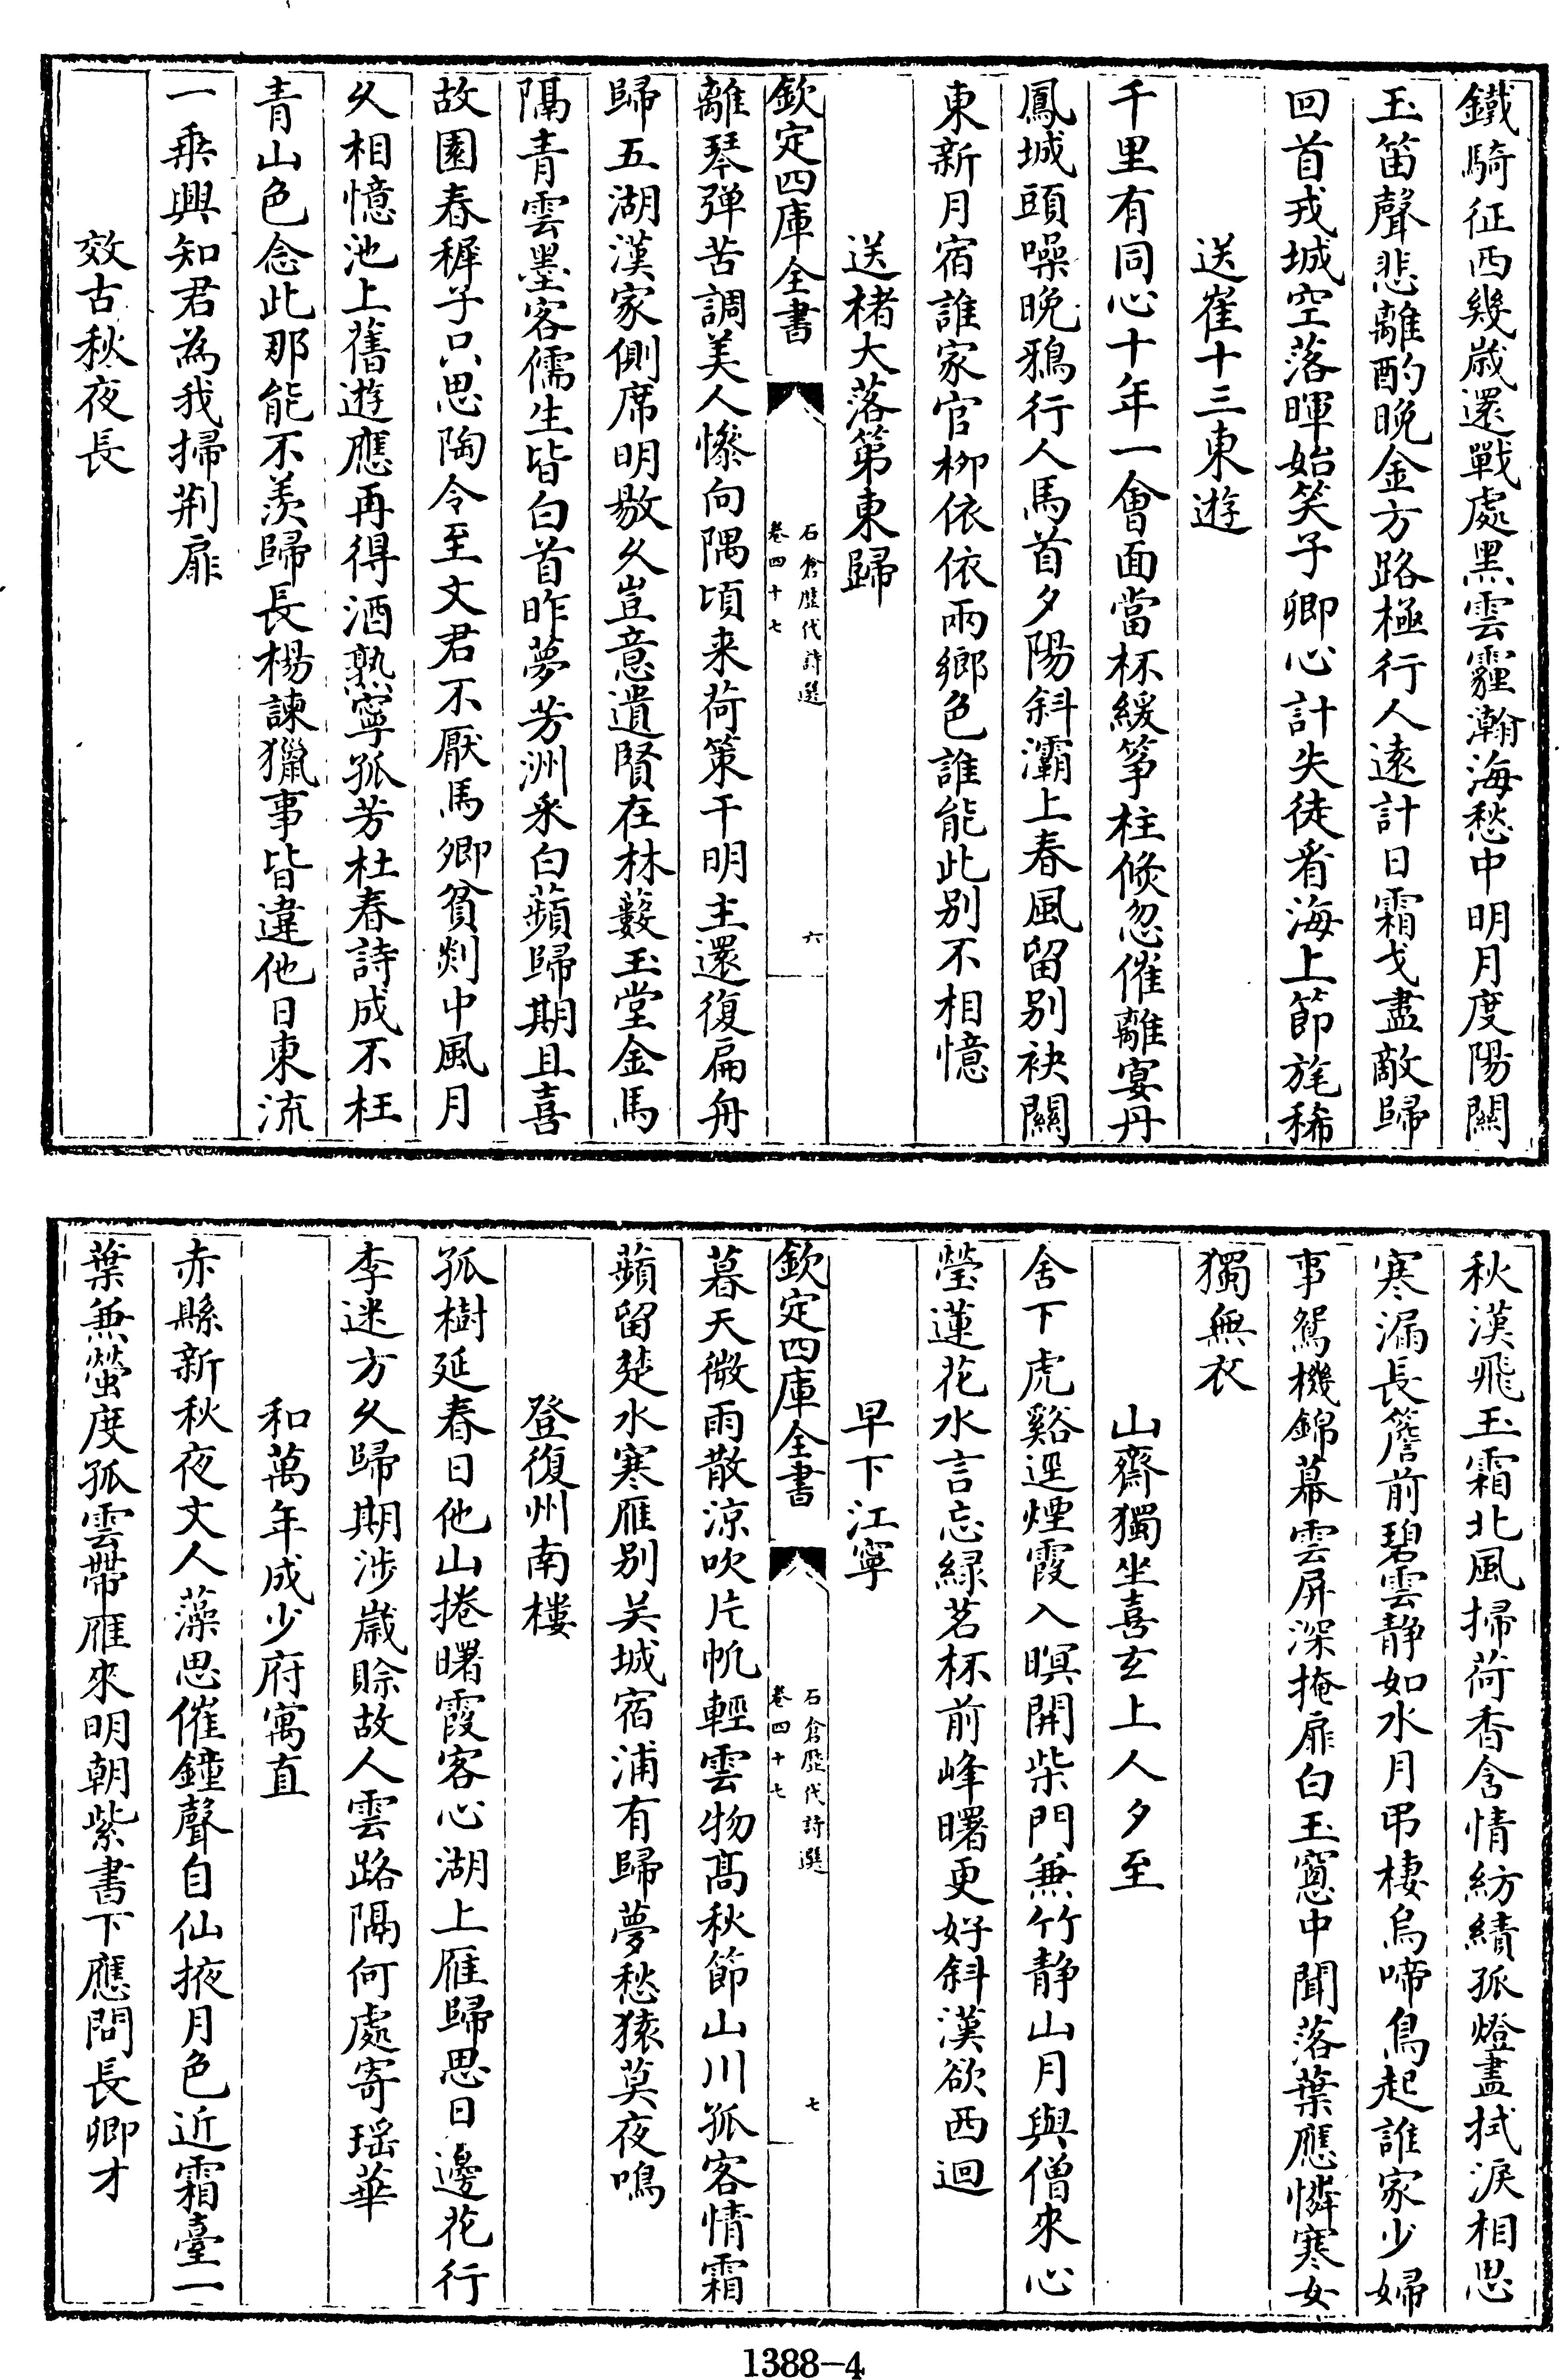 鐵騎征西幾歲還戰處黑雲霾瀚海愁中明月度陽關
玉笛聲悲離酌晚金方路極行人遠計日霜戈盡敵歸
回首戎城空落暉始笑子卿心計失徒看海上節旄稀
送崔十三東遊
千里有同心十年一會面當杯緩箏柱倐忽催離宴丹
鳳城頭噪晚鴉行人馬首夕陽斜灞上春風留别袂關
東新月宿誰家官栁依依兩鄉色誰能此别不相憶
送楮大落第東歸
欽定四庫全書
石倉歷代詩選
卷四十七
六
離琴弹苦調美人慘向隅頃来荷策干明主還復扁舟
歸五湖漢家側席明敭久豈意遺賢在林藪玉堂金馬
隔青雲墨客儒生皆白首昨夢芳洲采白蘋歸期且喜
故園春穉子只思陶令至文君不厭馬卿貧剡中風月
久相憶池上舊遊應再得酒熟寧孤芳杜春詩成不枉
青山色念此那能不羡歸長楊諫獵事皆違他日東流
一乘興知君為我掃荆扉
效古秋夜長
秋漢飛玉霜北風掃荷香含情紡績孤燈盡拭淚相思
寒漏長簷前碧雲静如水月弔棲烏啼鳥起誰家少婦
事鴛機錦幕雲屏深掩扉白玉窻中聞落葉應憐寒女
獨無衣
山齋獨坐喜玄上人夕至
舍下虎谿逕煙霞入暝開柴門兼竹静山月與僧來心
瑩蓮花水言忘緑茗杯前峰曙更好斜漢欲西迴
早下江寧
欽定四庫全書
石倉歷代詩選
卷四十七
七
暮天微雨散涼吹片帆輕雲物髙秋節山川孤客情霜
蘋留楚水寒雁别吴城宿浦有歸夢愁猿莫夜鳴
登復州南樓
孤樹延春日他山捲曙霞客心湖上雁歸思日邊花行
李迷方久歸期涉歲賖故人雲路隔何處寄瑶華
和萬年成少府寓直
赤縣新秋夜文人藻思催鐘聲自仙掖月色近霜臺一
葉兼螢度孤雲帶雁來明朝紫書下應問長卿才
1388-4